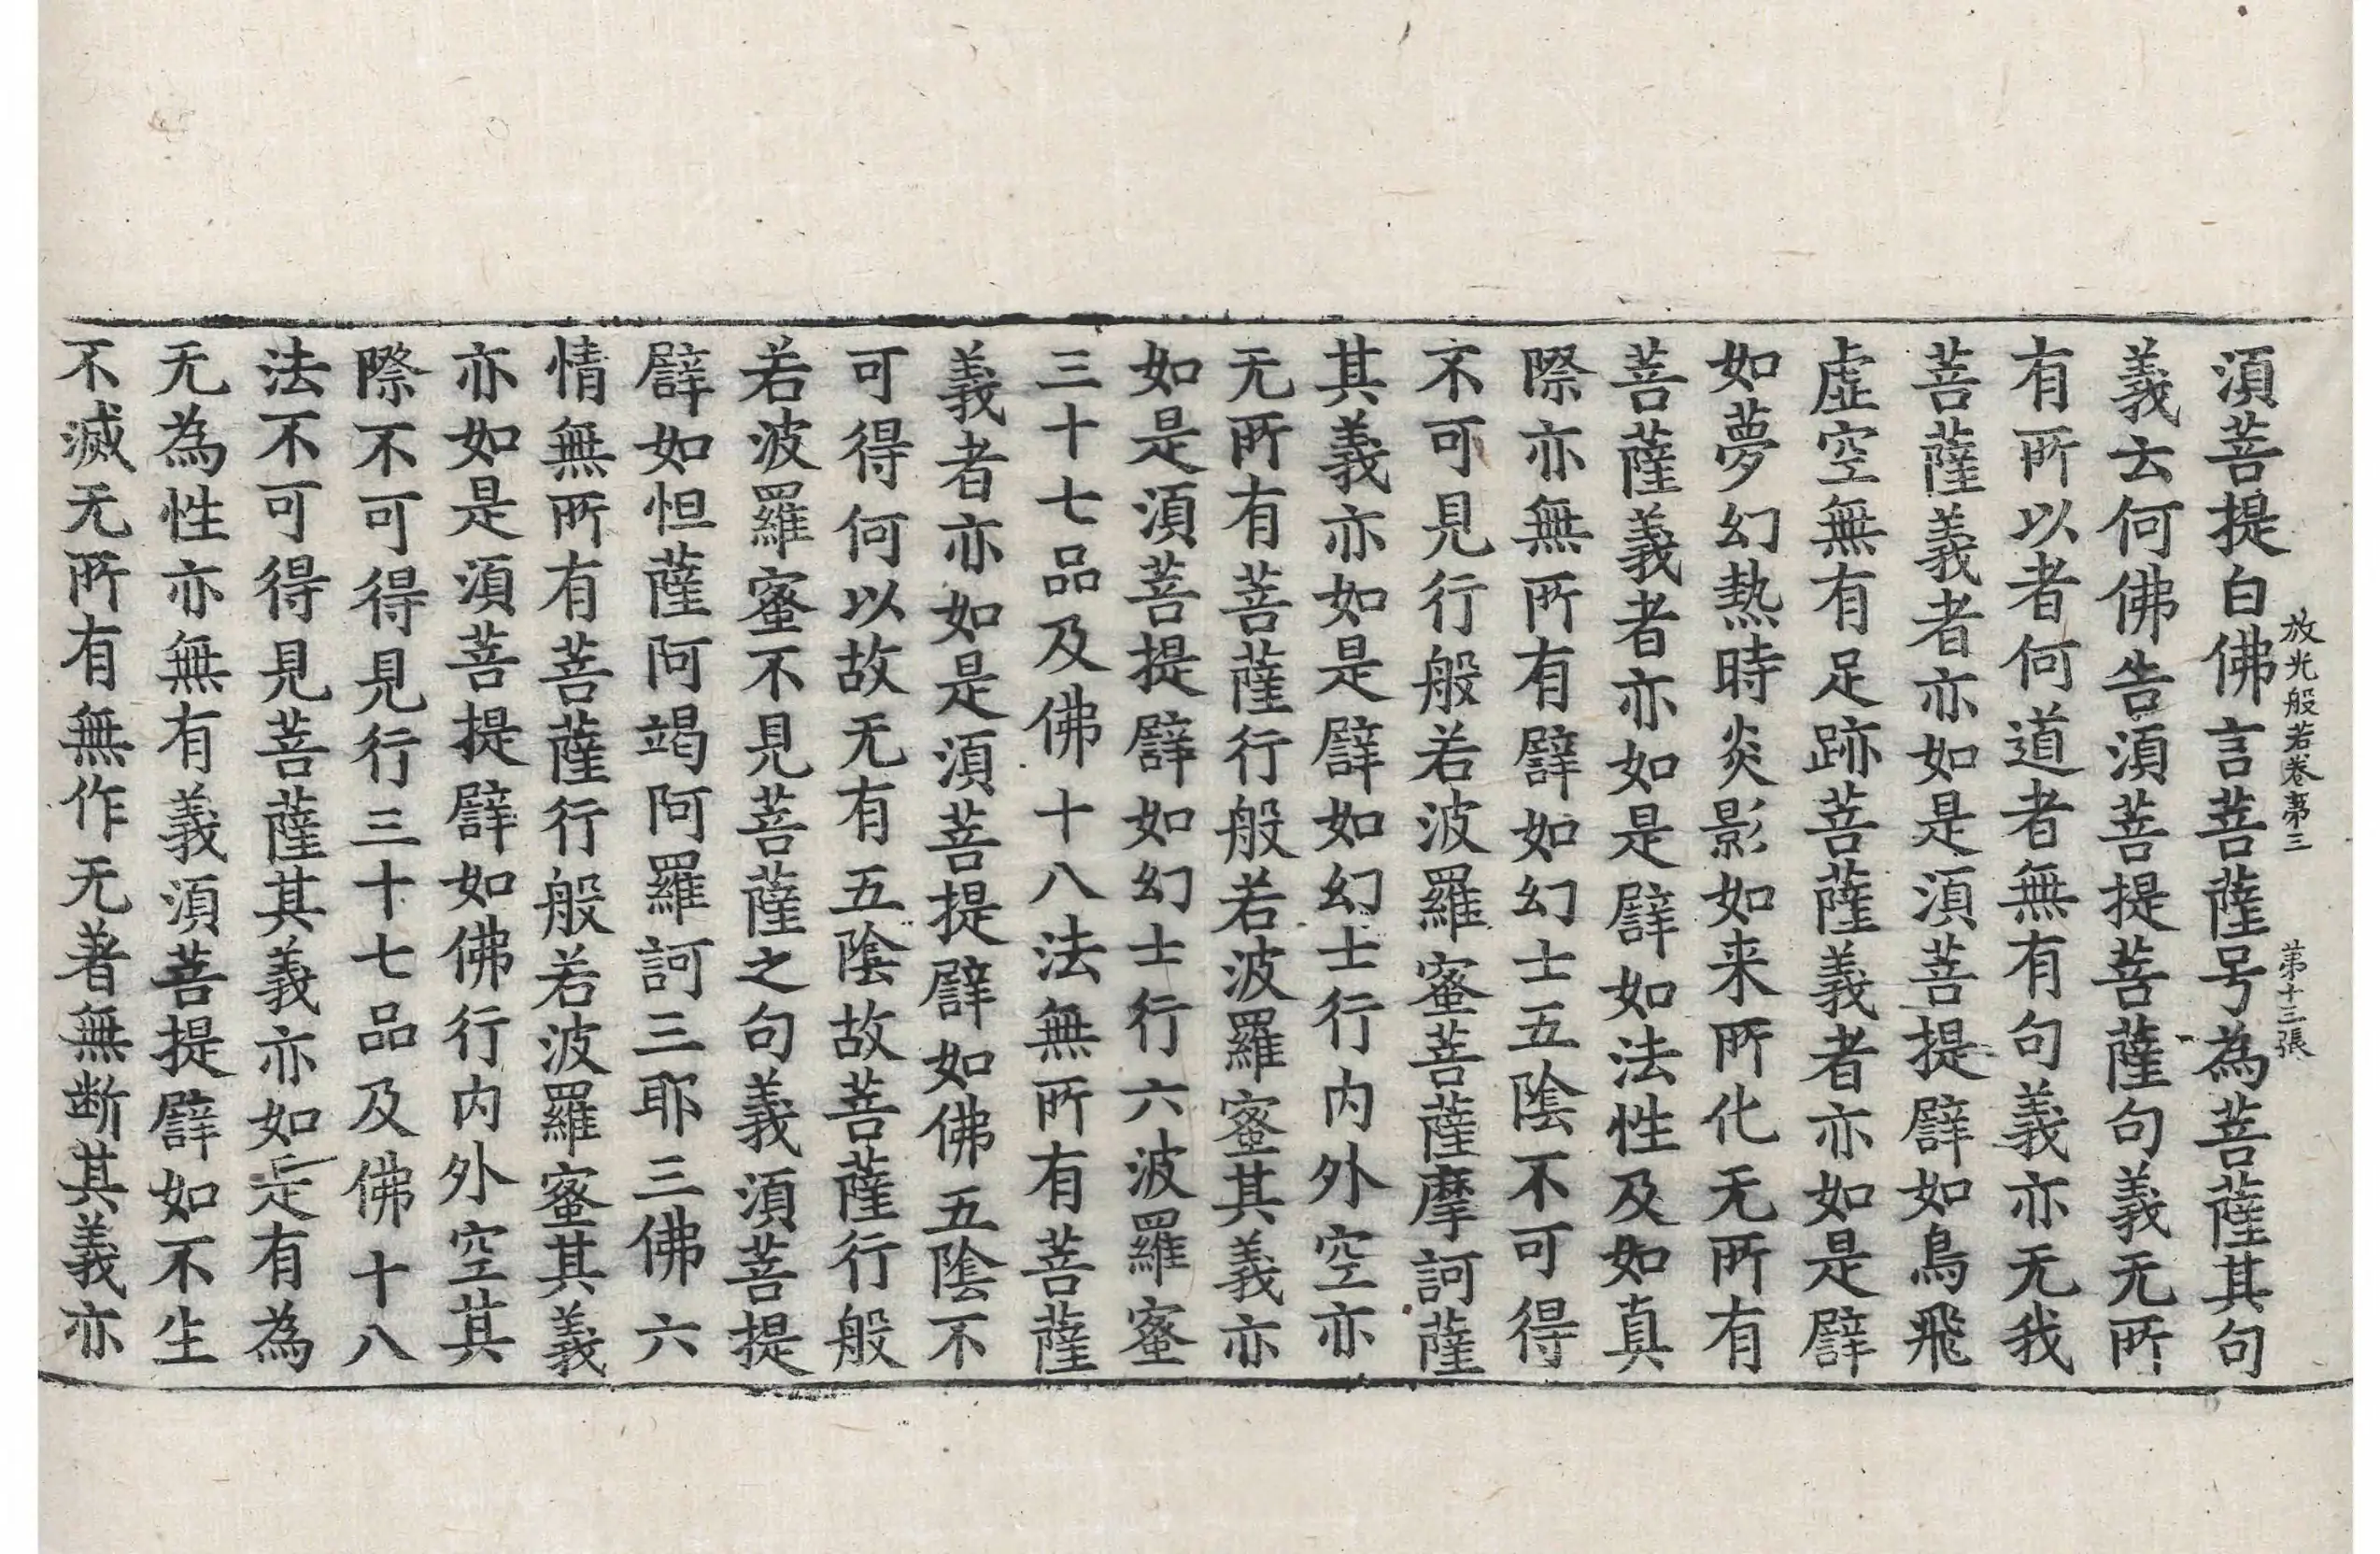 放光般若卷第三 第十三張
須菩提白佛言菩薩号為菩薩其句
義云何佛告須菩提菩薩句義无所
有所以者何道者無有句義亦无我
菩薩義者亦如是須菩提譬如鳥飛
虛空無有足跡菩薩義者亦如是譬
如夢幻熱時炎影如来所化无所有
菩薩義者亦如是譬如法性及如真
際亦無所有譬如幻士五陰不可得
不可見行般若波羅蜜菩薩摩訶薩
其義亦如是譬如幻士行内外空亦
无所有菩薩行般若波羅蜜其義亦
如是須菩提譬如幻士行六波羅蜜
三十七品及佛十八法無所有菩薩
義者亦如是須菩提譬如佛五陰不
可得何以故无有五陰故菩薩行般
若波羅蜜不見菩薩之句義須菩提
譬如怛薩阿竭阿羅訶三耶三佛六
情無所有菩薩行般若波羅蜜其義
亦如是須菩提譬如佛行内外空其
際不可得見行三十七品及佛十八
法不可得見菩薩其義亦如是有為
无為性亦無有義須菩提譬如不生
不滅无所有無作无著無断其義亦